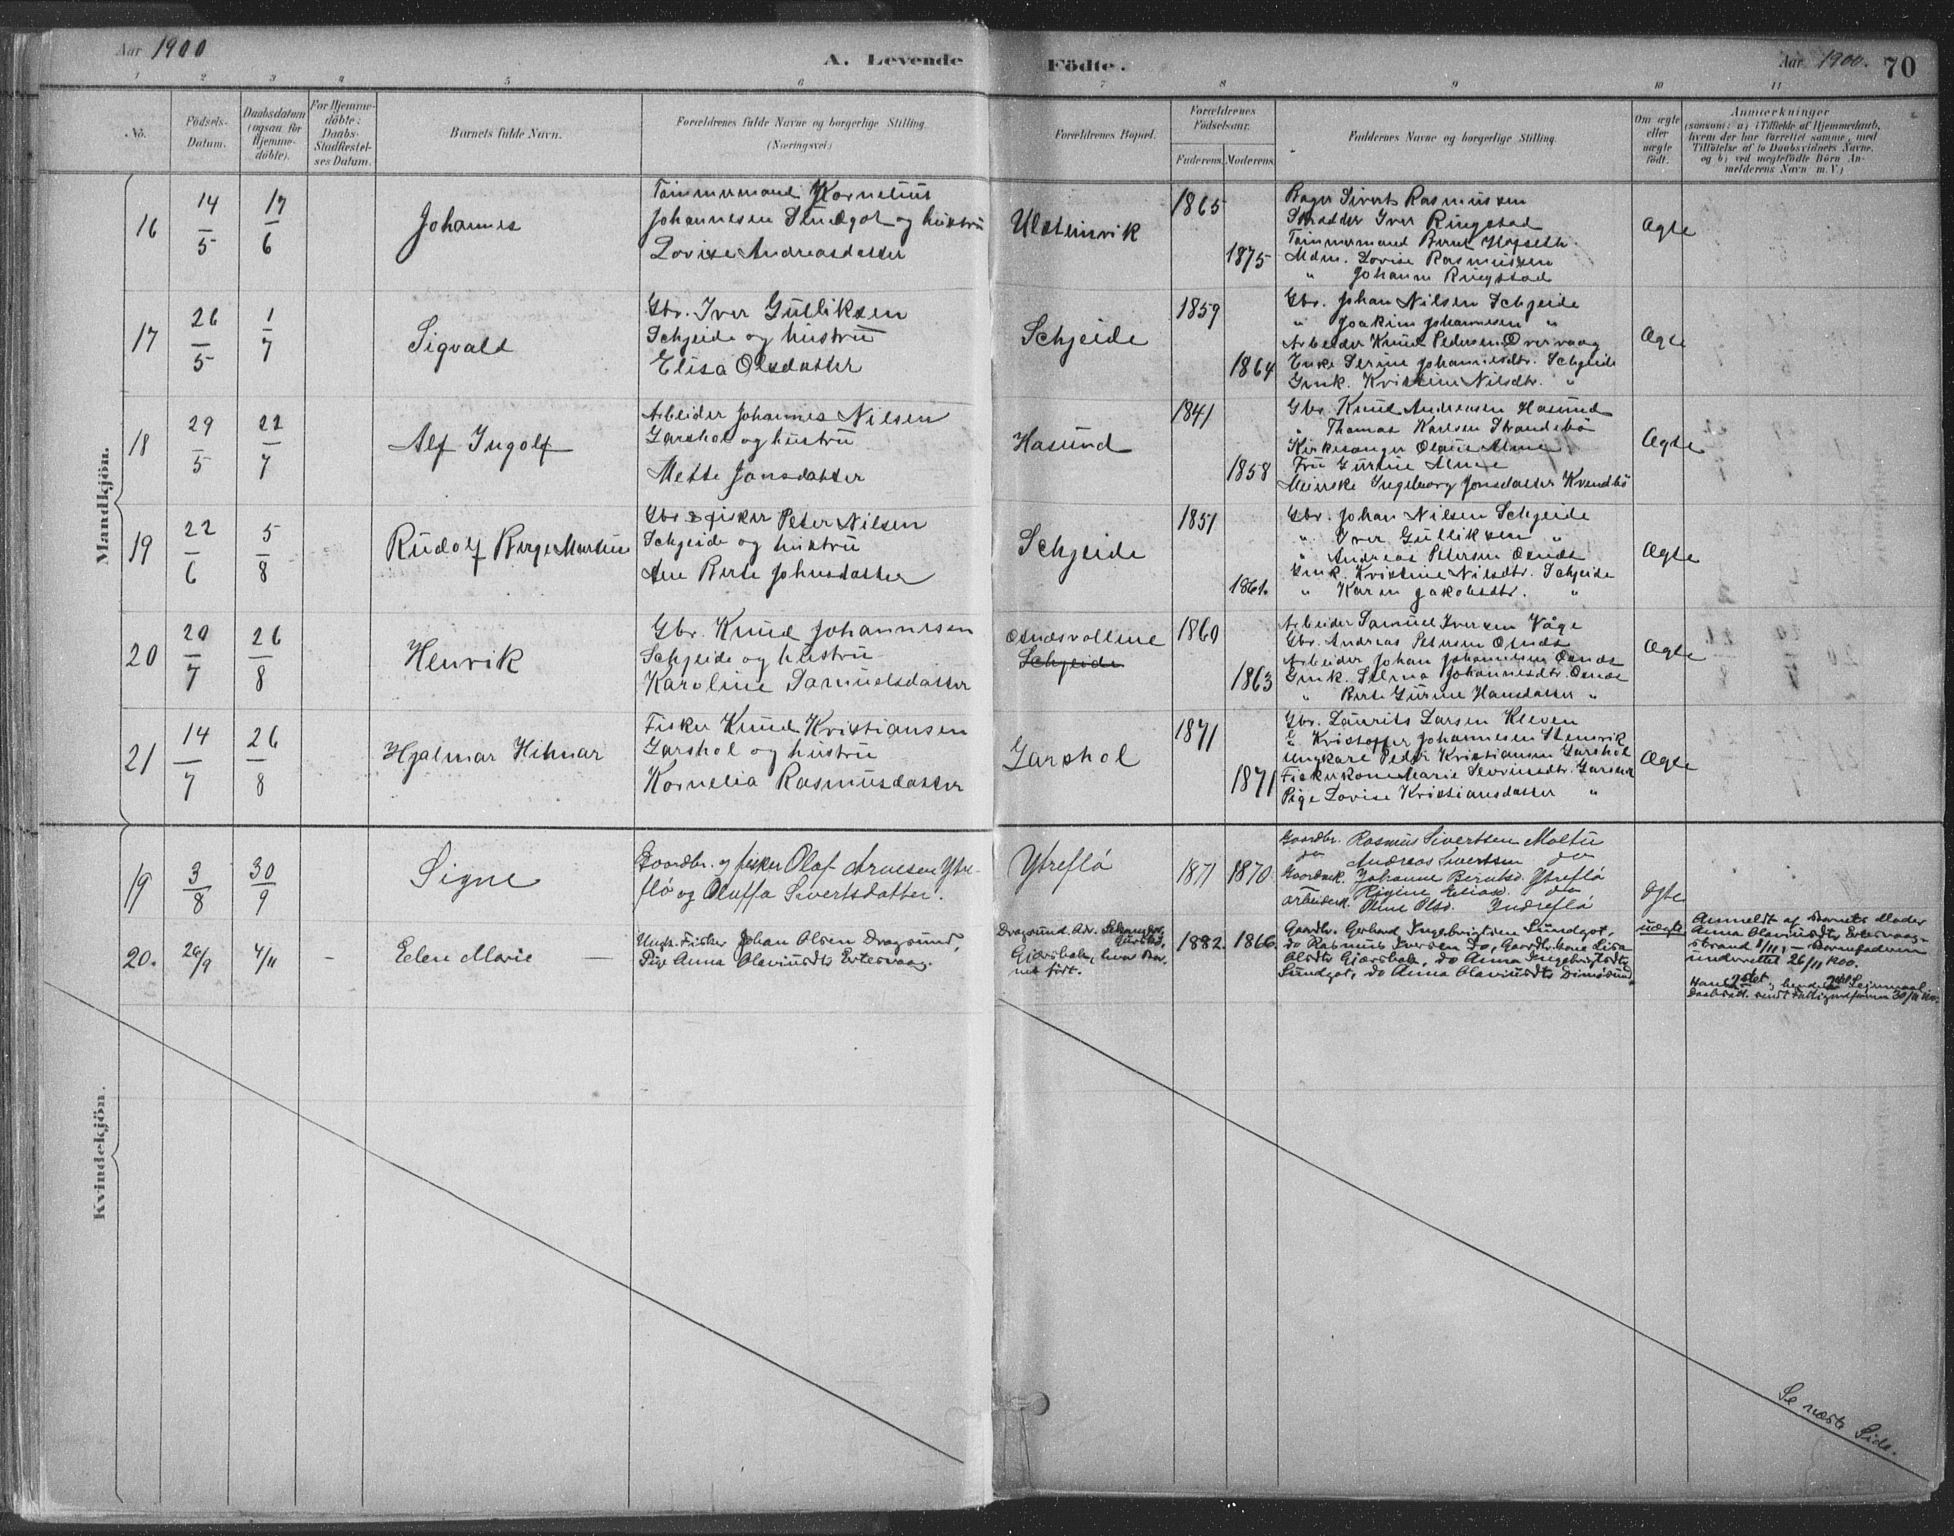 Aar 1900
A. Levende Födte.
Aar 1900. 70
1 2 3 4 5 6 7 8 9 10 11
No.
Födsels-
Datum.
Daabsdatum
(ogsaa for
Hjemme-
döbte).
For Hjemme-
döbte:
Daabs-
Stadfæstel-
ses Datum.
Barnets fulde Navn.
Forældrenes fulde Navne og borgerlige Stilling.
(Næringsvei)
Forældrenes Bopæl.
Forældrenes
Födselsaar.
Faderens. Moderens.
Faddernes Navne og borgerlige Stilling.
Om ægte
eller
uægte
født.
Anmærkninger
(saasom: a) i Tilfælde af Hjemmedaab,
hvem der har forrettet samme, med
Tilföielse af to Daabsvidners Navne,
og b) ved uægtefödte Börn An-
melderens Navn m. V.)
Mandkjön.
16
14/5
17/6
Johannes
Tömmermand Kornelius
Johannesen Sundgot og hustru
Lovise Andreasdatter
Ulsteinvik
1865
1875
Bager Sivert Rasmussen
Skrædder Iver Ringstad
Tömmermand Bernt Hofseth
Mdm. Lovise Rasmussen
" Johanne Ringstad
Ægte
17
26/5
1/7
Sigvald
Gbr. Iver Gulliksen
Schjeide og hustru
Elisa Olsdatter
Schjeide
1859
1864
Gbr. Johan Nilsen Schjeide
" Joakim Johannesen "
Arbeider Knud Pedersen Overvaag
Enke Serine Johannesdtr. Schjeide
Gmk. Kristine Nilsdtr. "
Ægte
18
29/5
22/7
Alf Ingolf
Arbeider Johannes Nilsen
Garshol og hustru
Mette Jonsdatter
Hasund
1841
1858
Gbr. Knud Andreasen Hasund
" Thomas Karlsen Strandabö
Kirkesanger Olaus Alme
Fru Gurine Alme
Meierske Ingeborg Jonsdatter Kvendbö
Ægte
19
22/6
5/8
Rudolf Birger Martin
Gbr & fisker Peter Nilsen
Schjeide og hustru
Ane Berte Johnsdatter
Schjeide
1851
1861.
Gbr. Johan Nilsen Schjeide
" Iver Gulliksen "
" Andreas Petersen Osnæs
Gmk. Kristine Nilsdtr. Schjeide
" Karen Jakobsdtr. "
Ægte
20
20/7
26/8
Henrik
Gbr. Knud Johannesen
Schjeide og hustru
Karoline Samuelsdatter
Osnæsvollene
Schjeide
1860
1863
Arbeider Samuel Iversen Våge
Gbr. Andreas Petersen Osnæs
Arbeider Johan Johannesen Osnæs
Gmk. Selma Johannesdtr. Osnæs
" Berte Gurine Hansdatter "
Ægte
21
14/7
26/8
Hjalmar Hilmar
Fisker Knud Kristiansen
Garshol og hustru
Kornelia Rasmusdatter
Garshol
1871
1871
Gbr. Laurits Larsen Kleven
G. Kristoffer Johannesen Stensvik
Ungkarl Peder Kristiansen Garshol
Fiskerkone Marie Severinsdtr. Garshol
Pige Lovise Kristiansdatter "
Ægte
Kvindekjön.
19
3/8
30/9
Signe
Gaardbr. og fisker Olaf Arnesen Ytre-
flö og Oluffa Sivertsdatter.
Ytreflö
1871 1870
Gaardbr. Rasmus Sivertsen Moltu
do Andreas Sivertsen do
Gaardmk. Johanne Berntsd. Ytreflö
do Regine Eliasd. do
arbeiderk. Oline Olsd. Indreflö
Ægte
20.
26/9
4/11
-
Elen Marie -
Ungk. Fisker Johan Olsen Dragsund,
Pige Anna Olaviusdtr Ertesvaag.
Dragsund. Adr.
Gjærsholm, hvor Bar-
net födt.
1882. 1866.
Gaardbr. Gerhard Ingebrigtsen Sundgot,
do Rasmus Iversen do, Gaardbr.kone Lisa
Olsdtr Gjærsholm, do Anna Ingebrigtsdtr
Sundgot, do Anna Olaviusdtr Dimösund.
uægte
Anmeldt af Barnets Moder
Anna Olaviusdtr Ertesvaag-
strand 8/11, - Barnefaderen
underrettet 26/11 1900.
Hans 2det, hendes 2det Leiermaal
Daabsatt. sendt Fattigv.forman 30/11
Se næste Side.